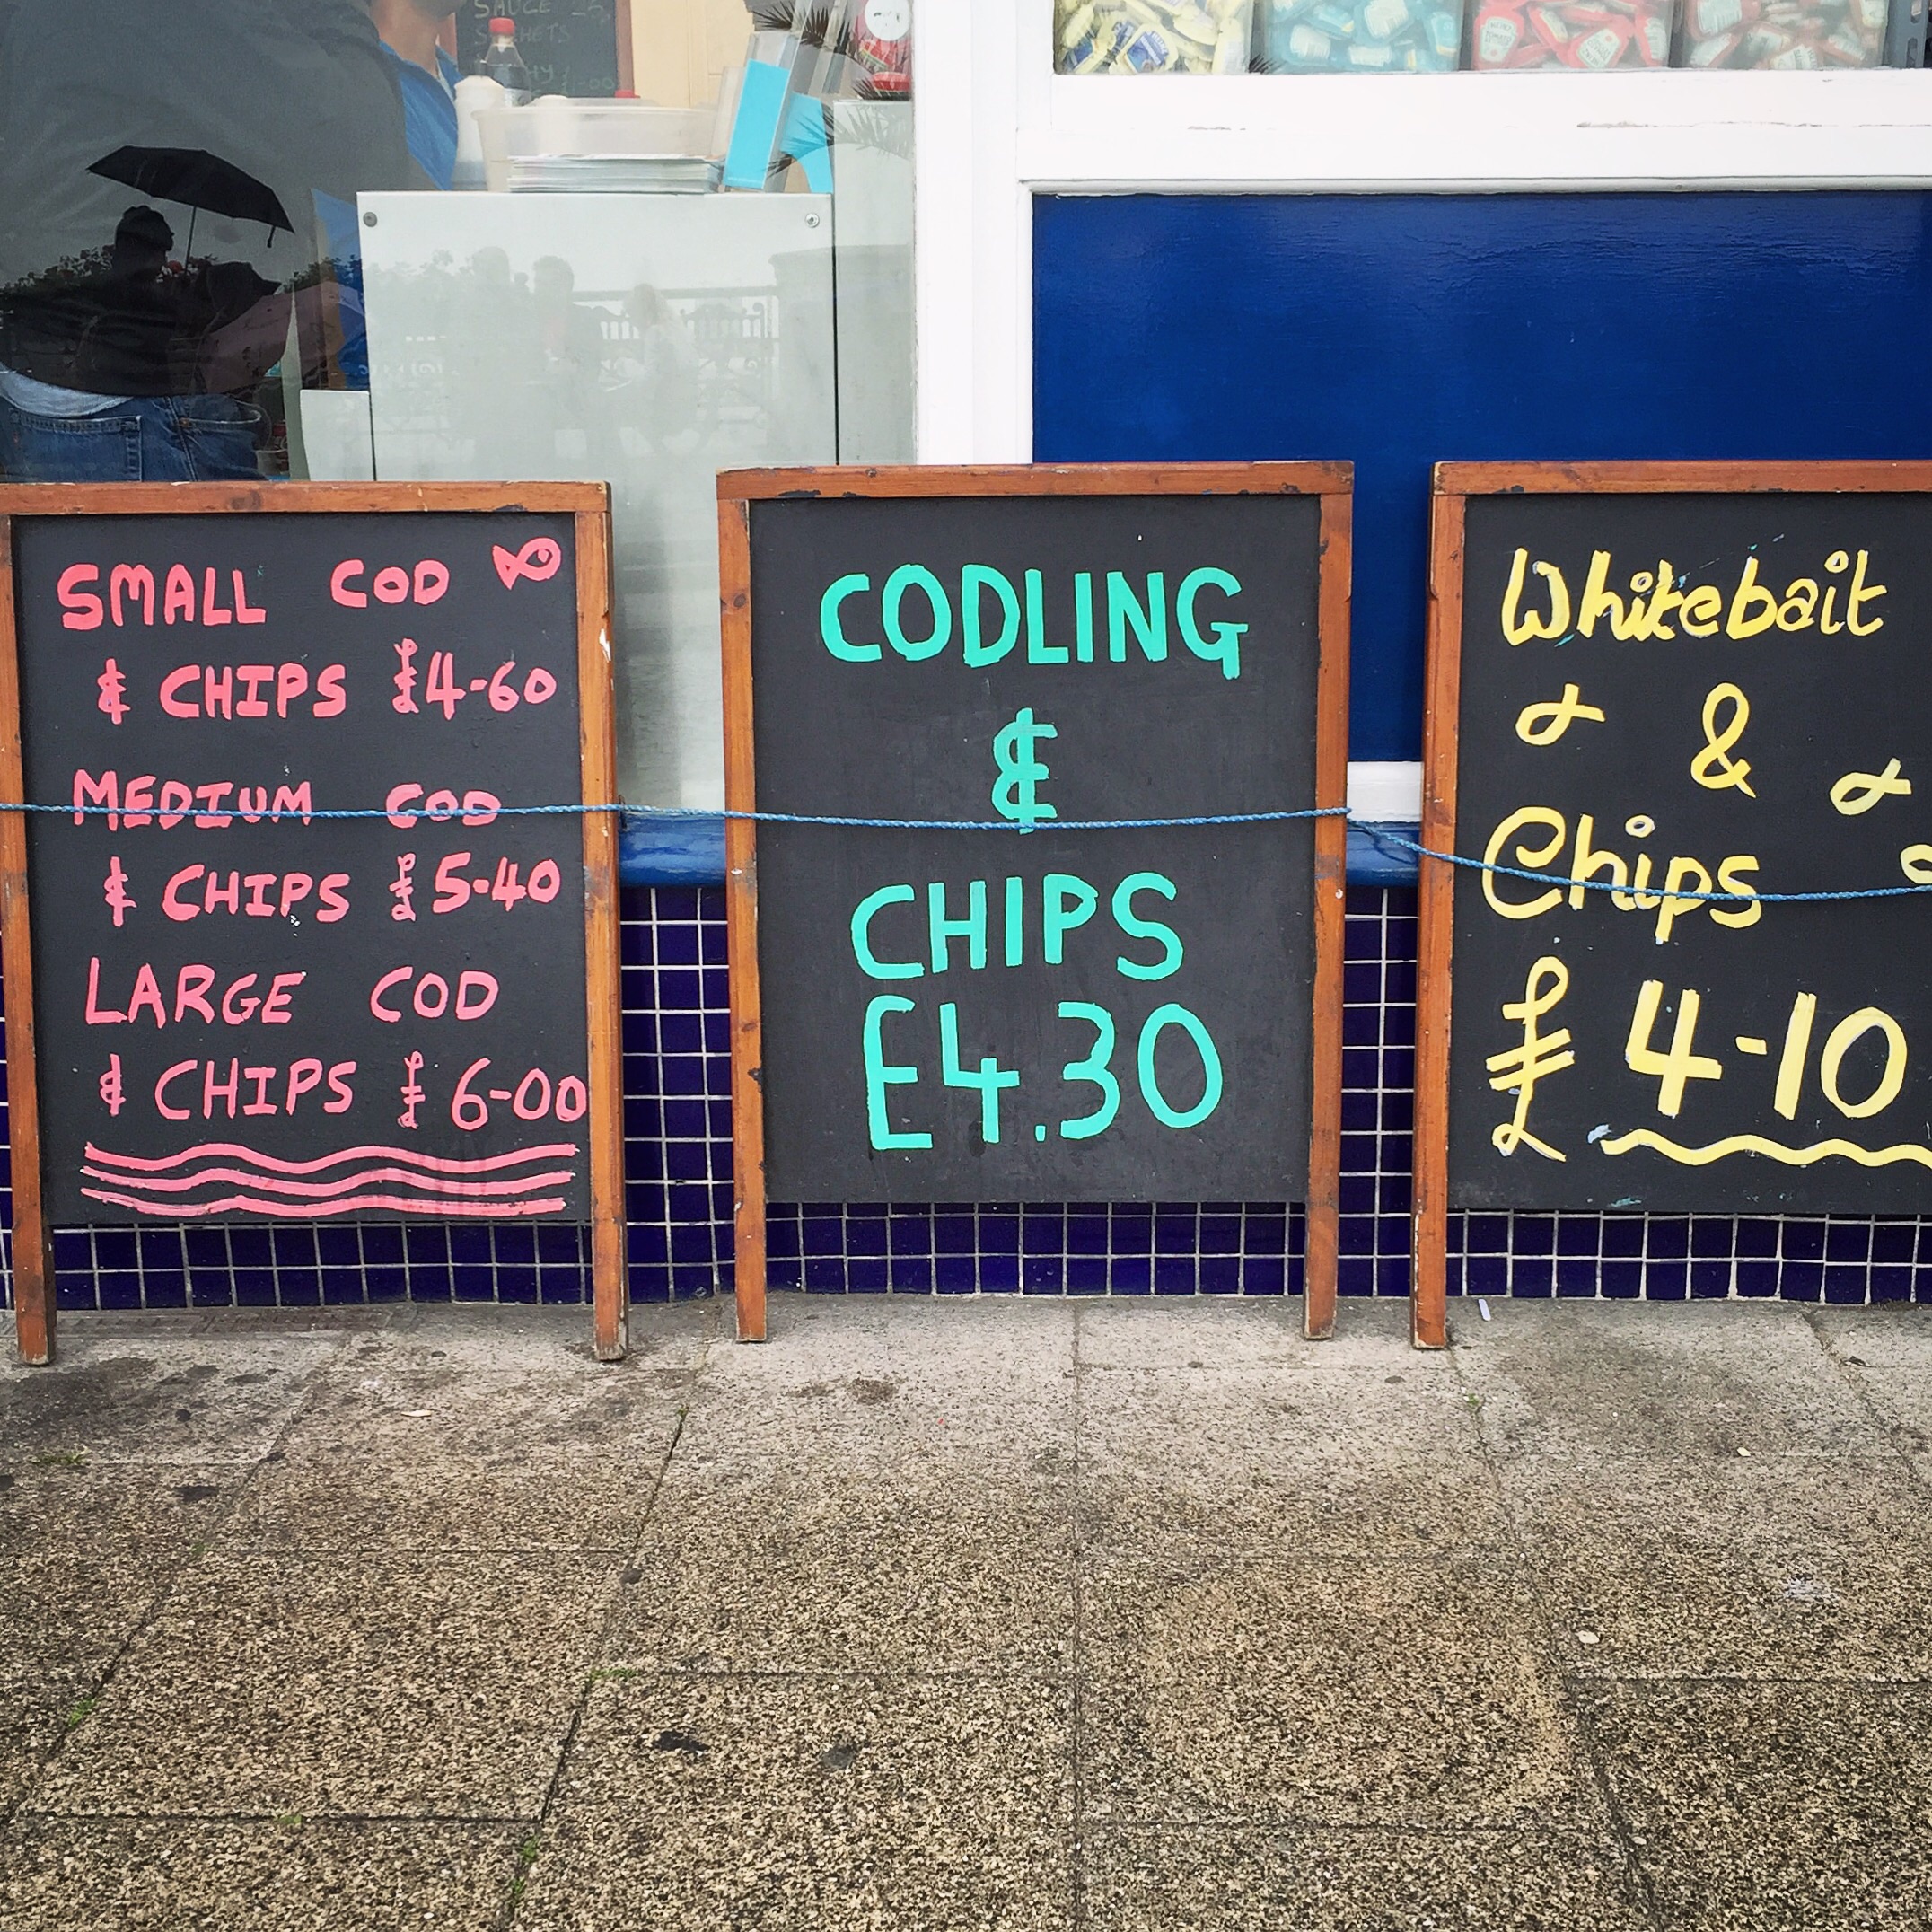 SAUCE
SMALL COD
& CHIPS £4-60
MEDIUM COD
& CHIPS £5-40
LARGE COD
& CHIPS £6-00
CODLING
&
CHIPS
£4.30
Whitebait
&
Chips
£4-10